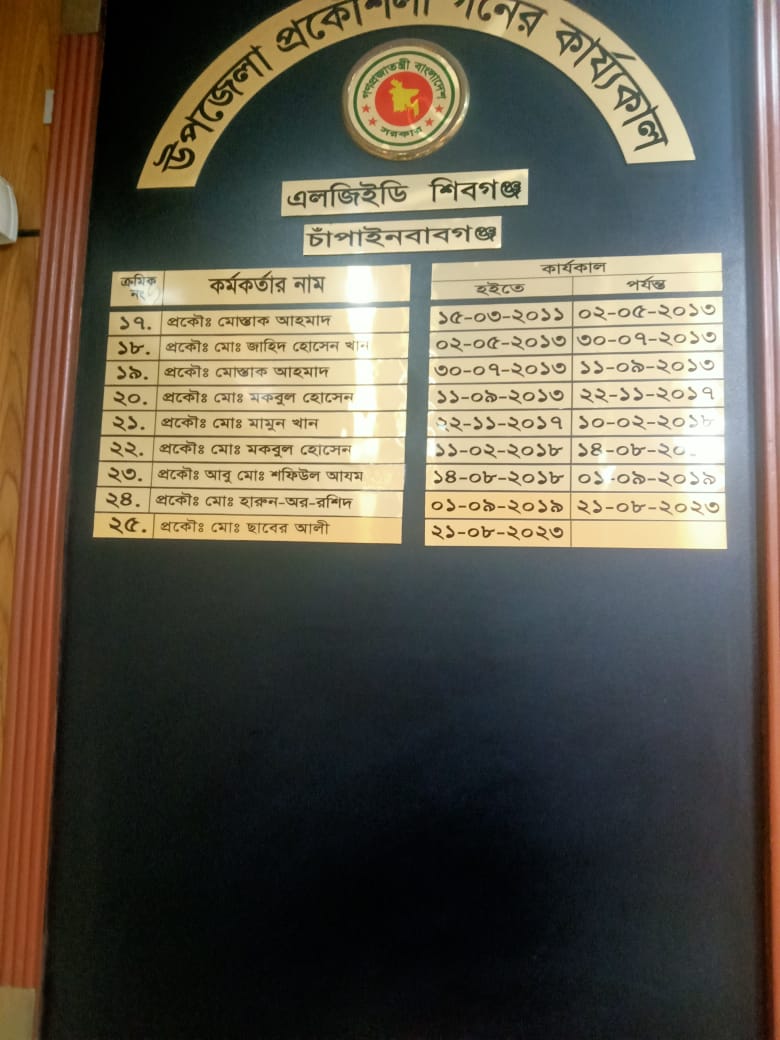 উপজেলা প্রকৌশলী গনের কার্য্যকাল
গণপ্রজাতন্ত্রী বাংলাদেশ
সরকার
এলজিইডি শিবগঞ্জ
চাঁপাইনবাবগঞ্জ
ক্রমিক নং কর্মকর্তার নাম কার্যকাল
হইতে পর্যন্ত
১৭. প্রকৌঃ মোস্তাক আহমাদ ১৫-০৩-২০১১ ০২-০৫-২০১৩
১৮. প্রকৌঃ মোঃ জাহিদ হোসেন খান ০২-০৫-২০১৩ ৩০-০৭-২০১৩
১৯. প্রকৌঃ মোস্তাক আহমাদ ৩০-০৭-২০১৩ ১১-০৯-২০১৩
২০. প্রকৌঃ মোঃ মকবুল হোসেন ১১-০৯-২০১৩ ২২-১১-২০১৭
২১. প্রকৌঃ মোঃ মামুন খান ২২-১১-২০১৭ ১০-০২-২০১৮
২২. প্রকৌঃ মোঃ মকবুল হোসেন ১১-০২-২০১৮ ১৪-০৮-২০
২৩. প্রকৌঃ আবু মোঃ শফিউল আযম ১৪-০৮-২০১৮ ০১-০৯-২০১৯
২৪. প্রকৌঃ মোঃ হারুন-অর-রশিদ ০১-০৯-২০১৯ ২১-০৮-২০২৩
২৫. প্রকৌঃ মোঃ ছাবের আলী ২১-০৮-২০২৩